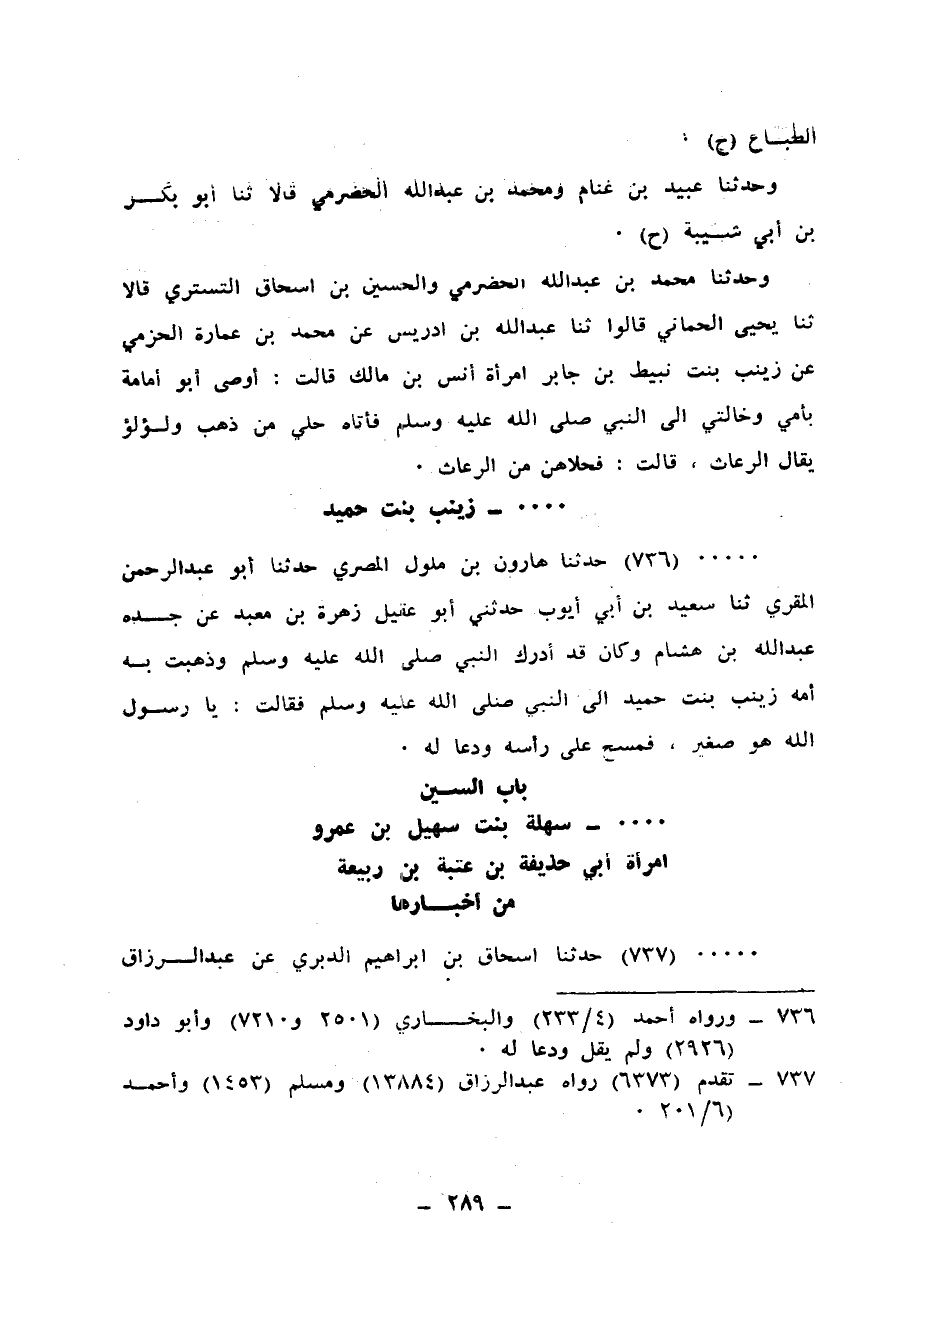 الطبـاع (ح) ·
وحدثنا عبيد بن غنام ومحمد بن عبدالله الحضرمي قالا ثنا أبو بكـر
بن أبي شـيبة (ح) ·
وحدثنا محمد بن عبدالله الحضرمي والحسين بن اسحاق التستري قالا
ثنا يحيى الحماني قالوا ثنا عبدالله بن ادريس عن محمد بن عمارة الحزمي
عن زينب بنت نبيط بن جابر امرأة أنس بن مالك قالت : أوصى أبو أمامة
بأمي وخالتي الى النبي صلى الله عليه وسلم فأتاه حلي من ذهب ولـؤلؤ
يقال الرعاث ، قالت : فحلاهن من الرعاث ·
٠٠٠٠ ـ زينب بنت حميد
٠٠٠٠٠ (٧٣٦) حدثنا هارون بن ملول المصري حدثنا أبو عبدالرحمن
المقري ثنا سعيد بن أبي أيوب حدثني أبو عقيل زهرة بن معبد عن جـده
عبدالله بن هشام وكان قد أدرك النبي صلى الله عليه وسلم وذهبت بـه
أمه زينب بنت حميد الى النبي صلى الله عليه وسلم فقالت : يا رسـول
الله هو صغير ، فمسح على رأسه ودعا له ·
باب السـين
٠٠٠٠ ـ سهلة بنت سهيل بن عمرو
امرأة أبي حذيفة بن عتبة بن ربيعة
من أخبـارها
٠٠٠٠٠ (٧٣٧) حدثنا اسحاق بن ابراهيم الدبري عن عبدالـرزاق
٧٣٦ ـ ورواه أحمد (٢٣٣/٤) والبخـاري (٢٥٠١ و٧٢١٠) وأبو داود
(٢٩٢٦) ولم يقل ودعا له ·
٧٣٧ ـ تقدم (٦٣٧٣) رواه عبدالرزاق (١٣٨٨٤) ومسلم (١٤٥٣) وأحمـد
(٢٠١/٦ ·
ـ ٢٨٩ ـ